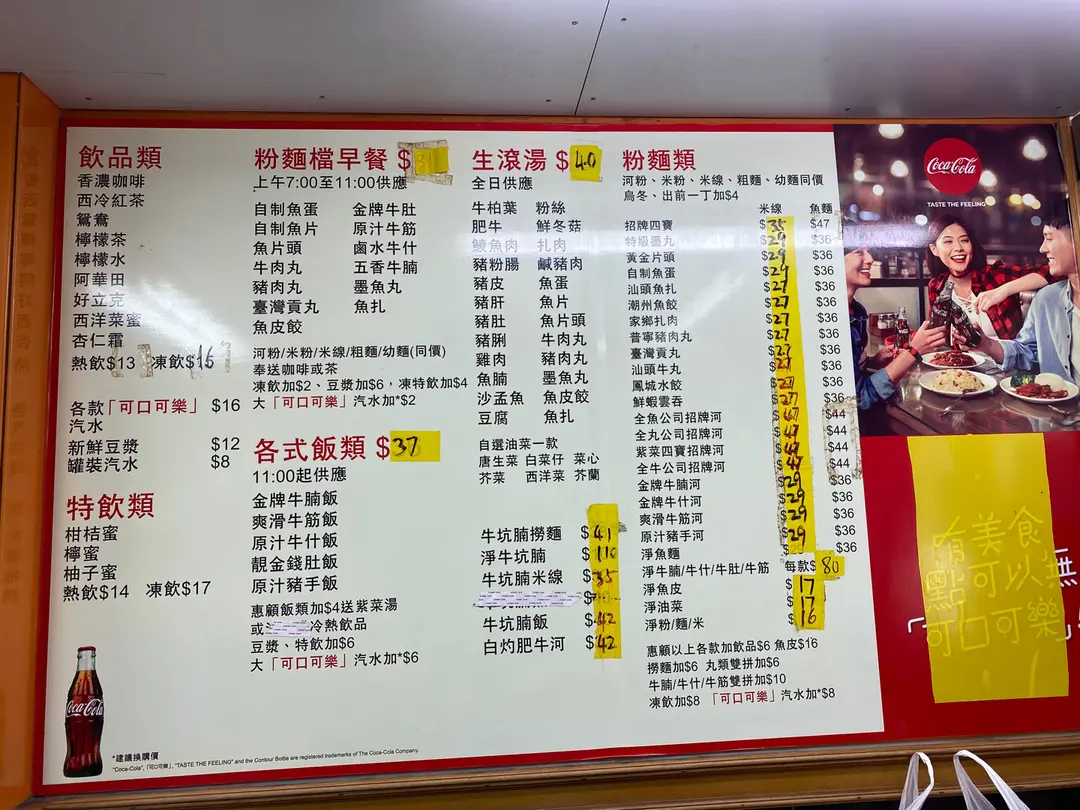 飲品類
香濃咖啡
西冷紅茶
鴛鴦
檸檬茶
檸檬水
阿華田
好立克
西洋菜蜜
杏仁霜
熱飲$13 凍飲$15
各款「可口可樂」 $16
汽水
新鮮豆漿 $12
罐裝汽水 $8
特飲類
柑桔蜜
檸蜜
柚子蜜
熱飲$14 凍飲$17
*建議換購價
"Coca-Cola", 「可口可樂」, "TASTE THE FEELING" and the Contour Bottle are registered trademarks of The Coca-Cola Company.
Coca-Cola
粉麵檔早餐 $
上午7:00至11:00供應
自制魚蛋 金牌牛肚
自制魚片 原汁牛筋
魚片頭 鹵水牛什
牛肉丸 五香牛腩
豬肉丸 墨魚丸
臺灣貢丸 魚扎
魚皮餃
河粉/米粉/米線/粗麵/幼麵(同價)
奉送咖啡或茶
凍飲加$2、豆漿加$6，凍特飲加$4
大「可口可樂」汽水加*$2
各式飯類 $37
11:00起供應
金牌牛腩飯
爽滑牛筋飯
原汁牛什飯
靚金錢肚飯
原汁豬手飯
惠顧飯類加$4送紫菜湯
或 冷熱飲品
豆漿、特飲加$6
大「可口可樂」汽水加*$6
生滾湯 $40
全日供應
牛柏葉 粉絲
肥牛 鮮冬菇
鯪魚肉 扎肉
豬粉腸 鹹豬肉
豬皮 魚蛋
豬肝 魚片
豬肚 魚片頭
豬脷 牛肉丸
雞肉 豬肉丸
魚腩 墨魚丸
沙孟魚 魚皮餃
豆腐 魚扎
自選油菜一款
唐生菜 白菜仔 菜心
芥菜 西洋菜 芥蘭
牛坑腩撈麵 $41
淨牛坑腩 $110
牛坑腩米線 $35
牛坑腩飯 $42
白灼肥牛河 $42
粉麵類
河粉、米粉、米線、粗麵、幼麵同價
烏冬、出前一丁加$4
米線 魚麵
招牌四寶 $35 $47
特級墨丸 $29 $36
黃金片頭 $29 $36
自制魚蛋 $27 $36
汕頭魚扎 $27 $36
潮州魚餃 $27 $36
家鄉扎肉 $27 $36
普寧豬肉丸 $27 $36
臺灣貢丸 $27 $36
汕頭牛丸 $27 $36
鳳城水餃 $27 $36
鮮蝦雲吞 $27 $36
全魚公司招牌河 $47 $44
全丸公司招牌河 $47 $44
紫菜四寶招牌河 $47 $44
全牛公司招牌河 $47 $36
金牌牛腩河 $29 $36
金牌牛什河 $29 $36
爽滑牛筋河 $29 $36
原汁豬手河 $29 $36
淨魚麵 $36
淨牛腩/牛什/牛肚/牛筋 每款$80
淨魚皮 $17
淨油菜 $17
淨粉/麵/米 $16
惠顧以上各款加飲品$6 魚皮$16
撈麵加$6 丸類雙拼加$6
牛腩/牛什/牛筋雙拼加$10
凍飲加$8 「可口可樂」汽水加*$8
Coca-Cola
TASTE THE FEELING
有美食
點可以無
可口可樂